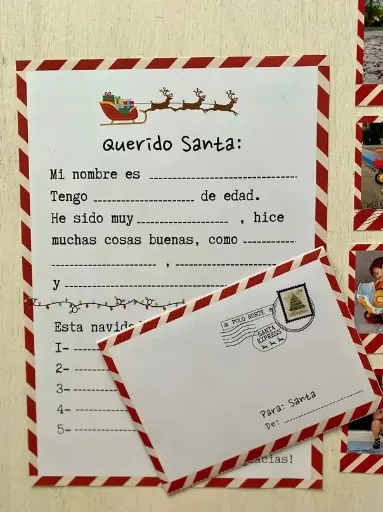 Querido Santa:
Mi nombre es
Tengo de edad.
He sido muy , hice
muchas cosas buenas, como
,
y
Esta
1-
2-
3-
4-
5-
POLO NORTE
SANTA
EXPRESS
Para: Santa
De: